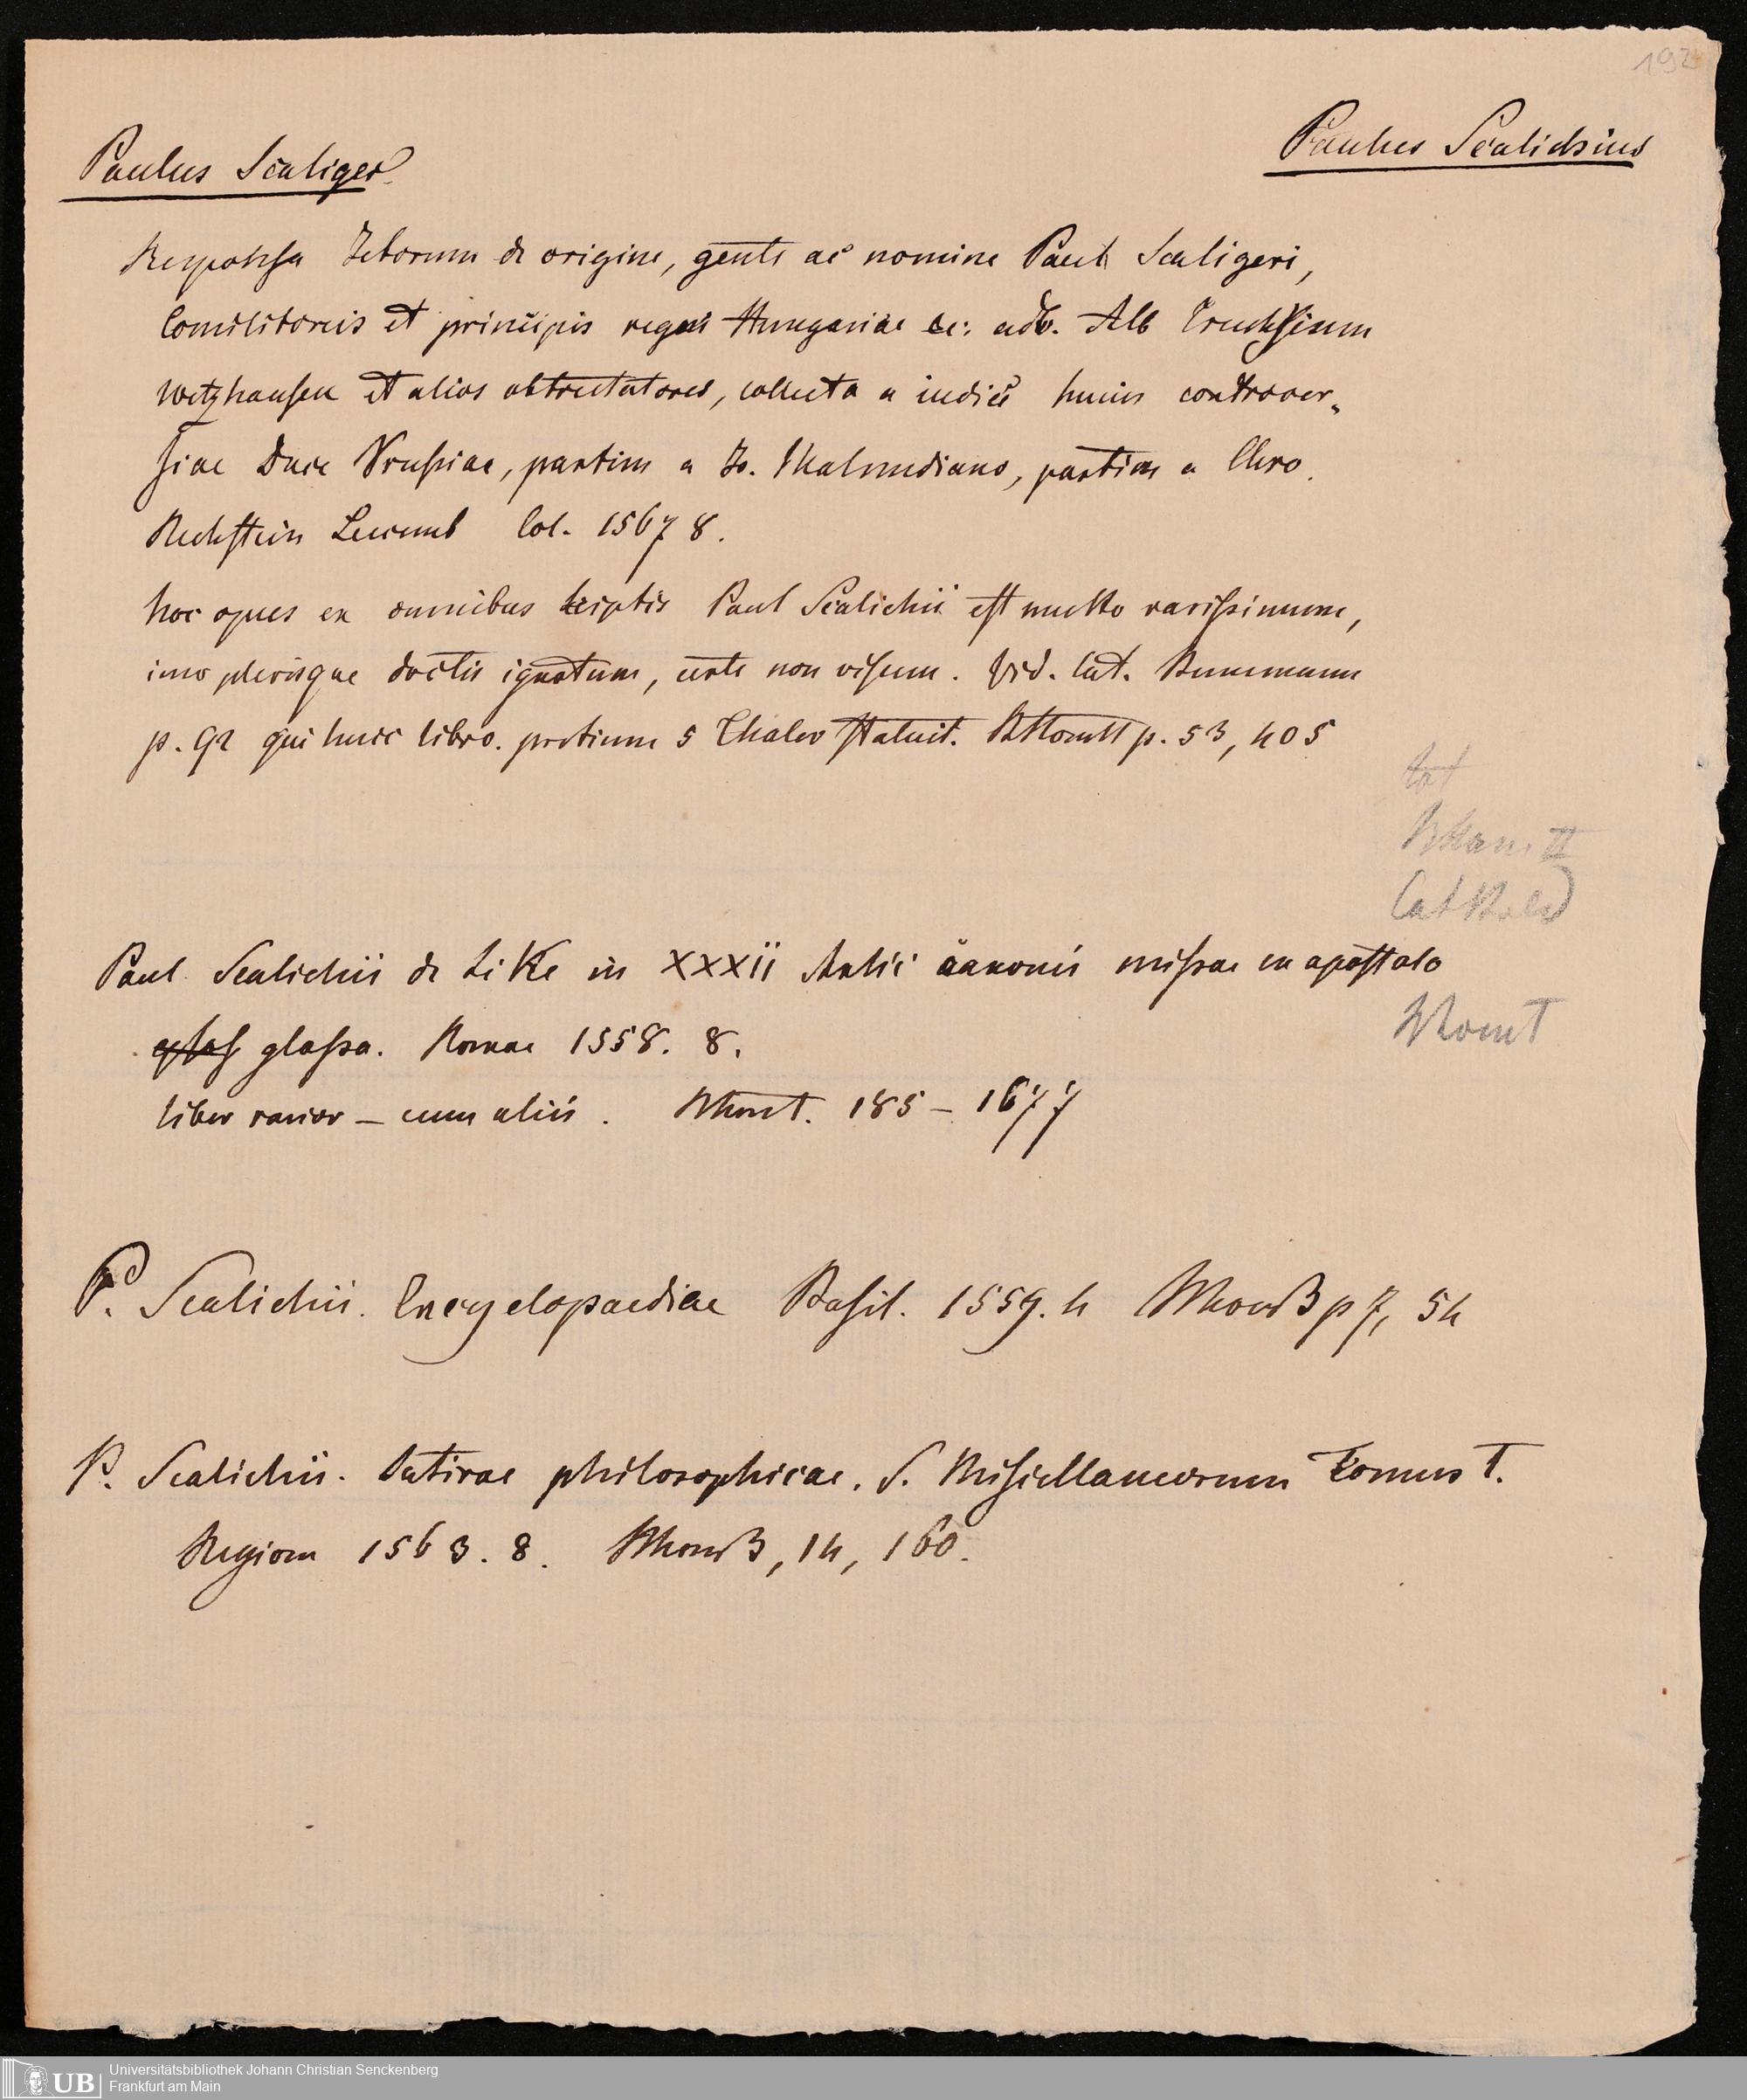 192
Paulus Scalichius
Paulus Scaliger
Responsa Jctorum de origine, gente ac nomine Pauli Scaligeri,
Comilitonis et principis regni Hungariae &c: adv. Alb Truchsium
Wetzhausen et alios obtrectatores, collecta a iudice huius controver-
siae Duce Prussiae, partim a Jo. Malmediano, partim a Chro.
Rechstein Lucemb Col. 1567 8.
hoc opus ex omnibus scriptis Paul Scalichii est multo rarissimum,
imo plerisque doctis ignotum, certe non visum. Vid. Cat. Bunemann
p. 92 qui huic libro. pretium 5 Thaler statuit. p. 53, 405
Cat
Paul Scalichii de in XXXII missae ex apostolo
glossa. Romae 1558. 8.
liber rarior – cum aliis. 185 – 1677
P. Scalichii. Encyclopaediae Basil. 1559. 4 p 7, 54
P. Scalichii. Satirae philosophicae. S. Miscellaneorum Tomus I.
Regiom 1563. 8. , 14, 160.
UB Universitätsbibliothek Johann Christian Senckenberg
Frankfurt am Main